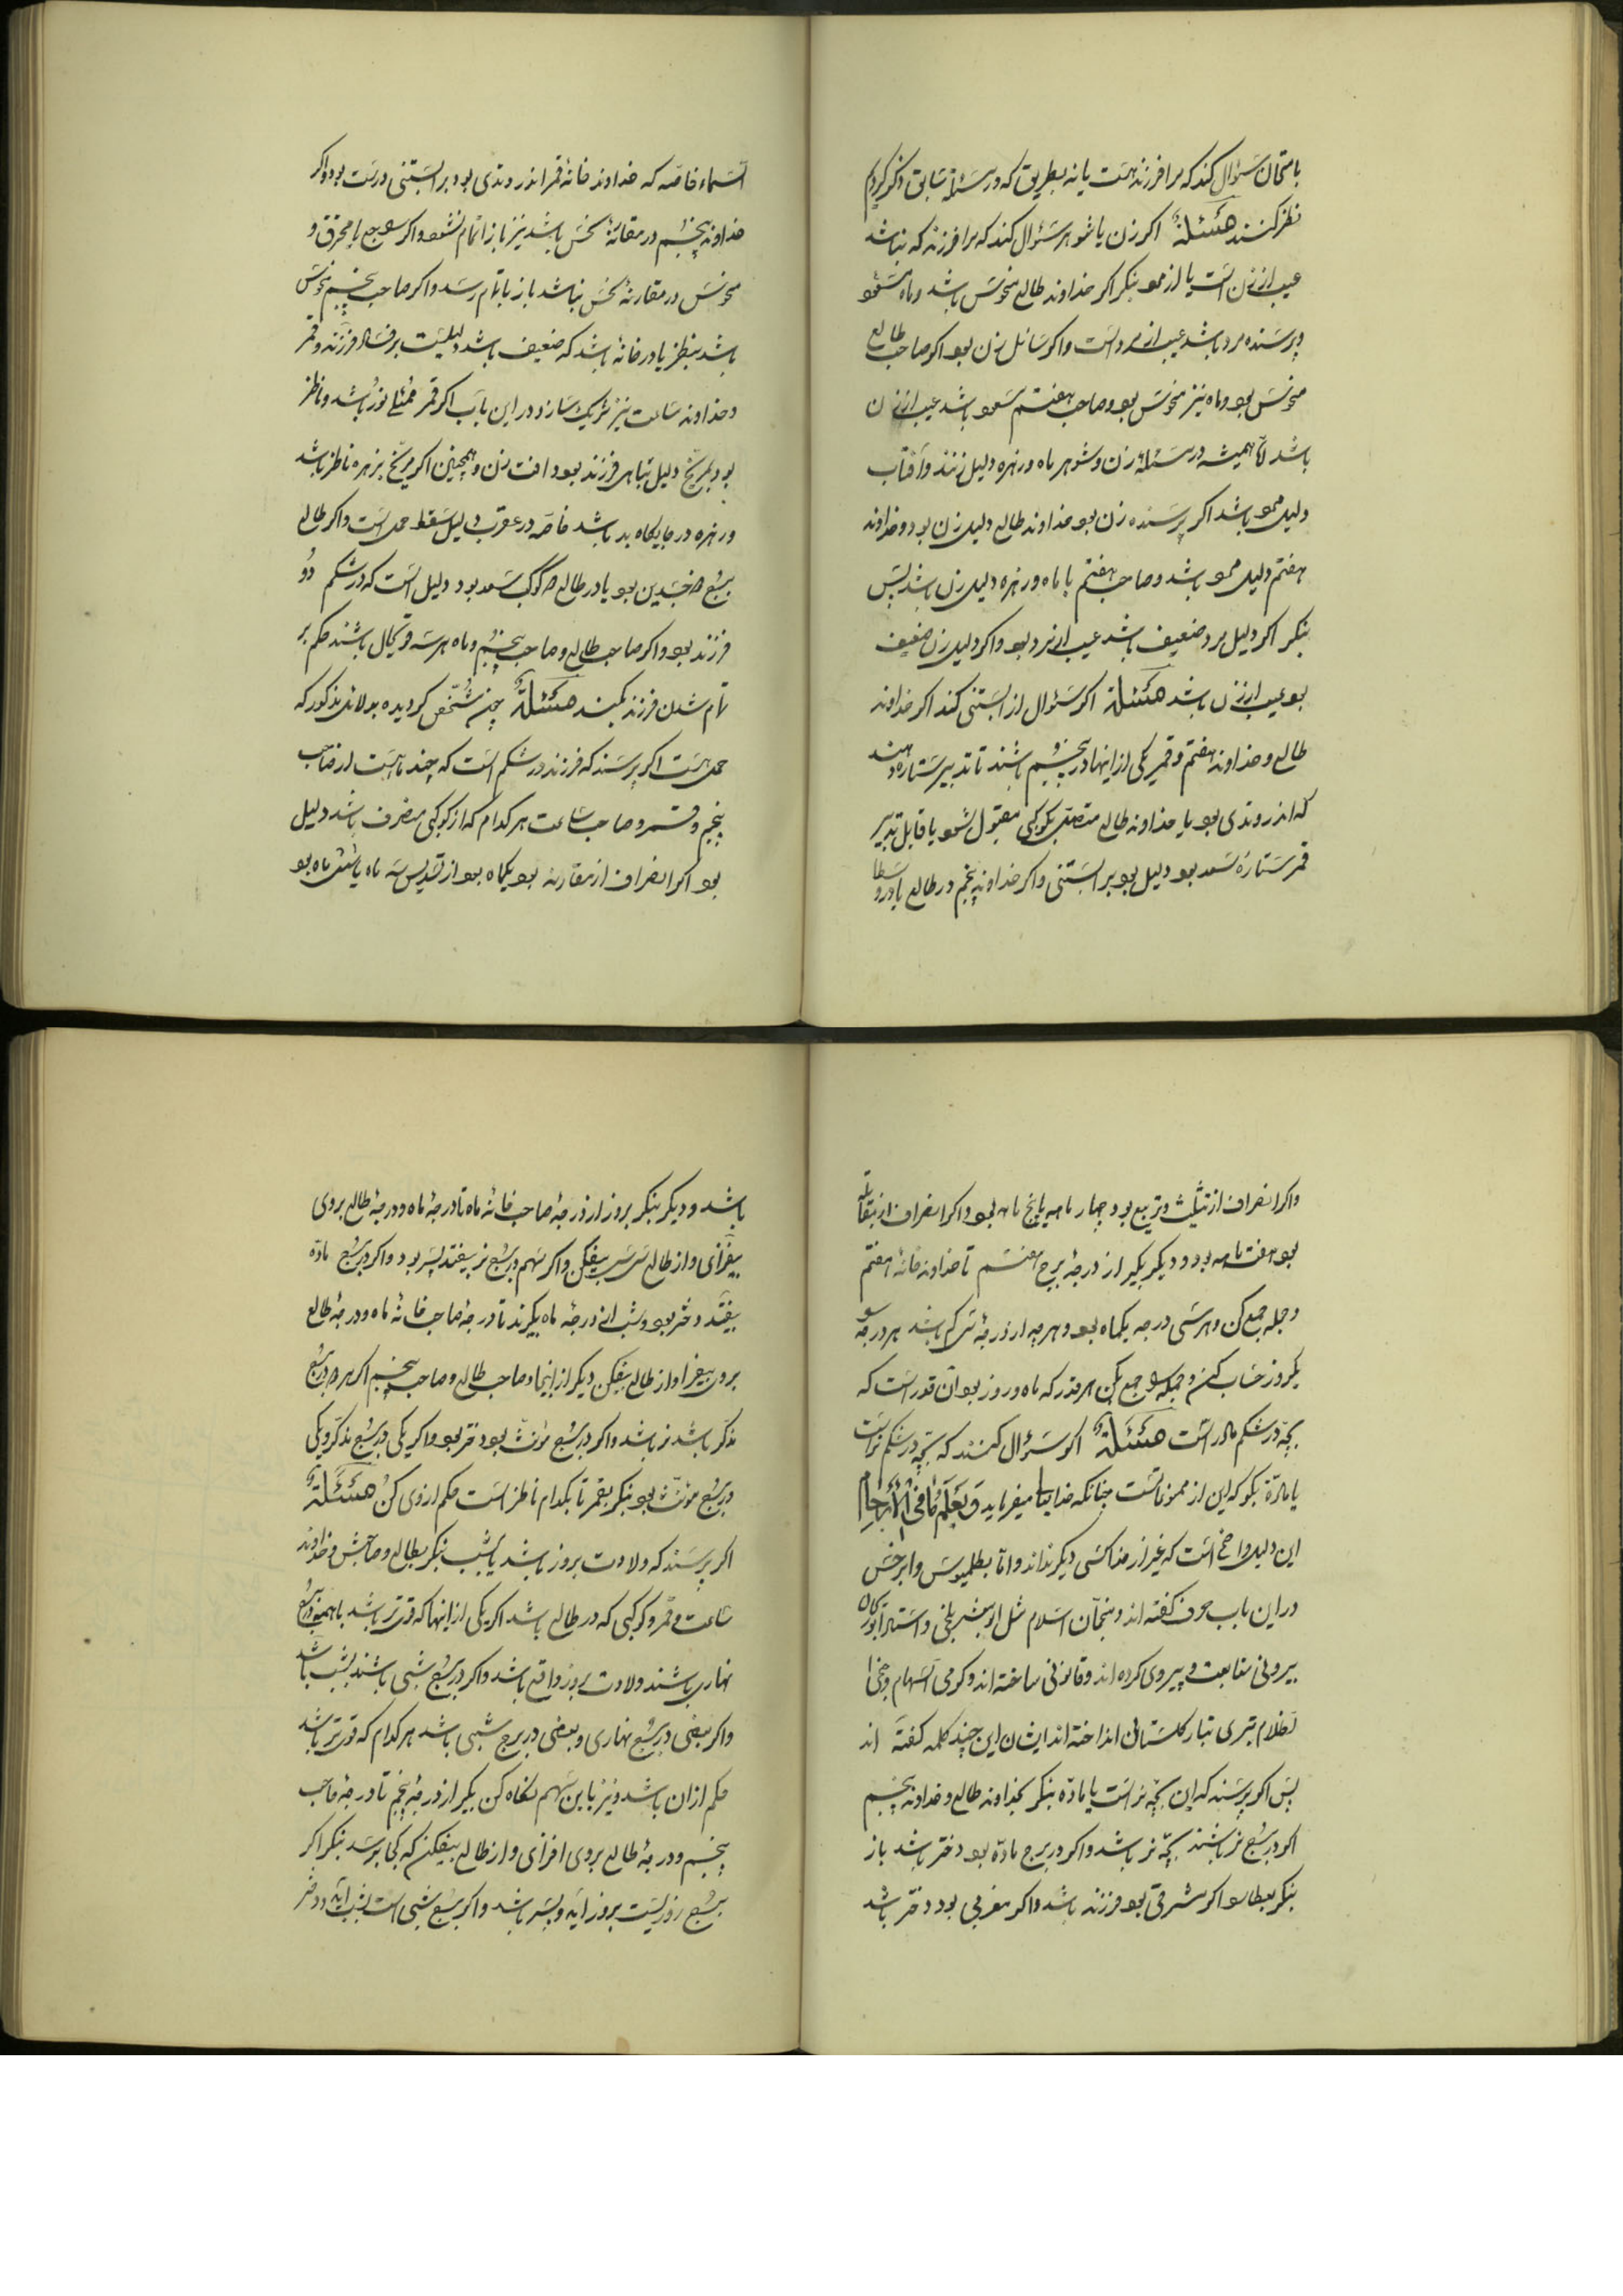 بامتحان سؤال کند که مرا فرزند هست یا نه بطریق که در مسئلهٔ سابق ذکر کردیم
نظر کنند مسئلة اکر زن یا شوهر سؤال کند که مرا فرزند که نباشد
عیب از زن است یا از مرد بنکر اکر خداوند طالع منحوس باشد و ماه مسعود
و پرسنده مرد باشد عیب از مرد است و اکر سائل زن بود اکر صاحب طالع
منحوس بود و ماه نیز منحوس بود و صاحب هفتم مسعود باشد عیب از زن
باشد امّا همیشه در مسئلهٔ زن و شوهر ماه و زهره دلیل زنند و آفتاب
دلیل مرد باشد اکر پرسنده زن بود خداوند طالع دلیل زن بود و خداوند
هفتم دلیل مرد باشد و صاحب هفتم با ماه و زهره دلیل زن باشد پس
بنکر اکر دلیل مرد ضعیف باشد عیب از مرد بود و اکر دلیل زن ضعیف
بود عیب از زن باشد مسئلة اکر سؤال از آبستنی کند اکر خداوند
طالع و خداوند هفتم و قمر یکی از اینها در پنجم باشند تا تدبیر ستاره دهند
که اندر وتدی بود یا خداوند طالع متصل بکوکبی مقبول شود یا قابل تدبیر
قمر ستارهٔ سعد بود دلیل بود بر آبستنی و اکر خداوند پنجم در طالع یا در وسط
السماء خاصّه که خداوند خانهٔ قمر اندر وتدی بود بر آبستنی درست بود و اکر
خداوند پنجم در مقارنهٔ نحس باشد نیز باز اتمام نشود و اکر راجع یا محترق و
منحوس در مقارنهٔ نحس نباشد باز باتمام رسد و اکر صاحب پنجم نحوس
باشد بنظر یا در خانهٔ باشد که ضعیف باشد دلیلیست بر فساد فرزند و قمر
و خداوند ساعت نیز شریک سازد و در این باب اکر قمر ممتلی نور باشد و ناظر
بود بمریخ دلیل تباهی فرزند بود و آفت زن و همچنین اکر مریخ بزهره ناظر باشد
و زهره در جایکاه بد باشد خاصّه در عقرب دلیل سقط حمل است و اکر طالع
برج ذوجسدین بود یا در طالع دو کوکب سعد بود دلیل است که در شکم دو
فرزند بود و اکر صاحب طالع و صاحب پنجم و ماه هر سه قوی حال باشند حکم بر
تمام شدن فرزند بکند مسئلة چون مشخص کردیده بدلائل مذکور که
حمل هست اکر پرسند که فرزند در شکم است که چند ماهست از صاحب
پنجم و قمر و صاحب ساعت هر کدام که از کوکبی منصرف باشد دلیل
بود اکر انصراف از مقارنه بود یکماه بود از تسدیس سه ماه یا شش ماه بود
و اکر انصراف از تثلیث و تربیع بود چهار ماهه یا پنج ماه بود و اکر انصراف از مقابله
بود هفت ماهه بود و دیکر بکیر از درجهٔ برج هفتم تا خداوند خانهٔ هفتم
و جمله جمع کن و هر سی درجه یکماه بود و هر چه از درجهٔ سی کم باشد هر درجه را
یکروز حساب کن و جمله را جمع بکن هر قدر که ماه و روز بود آن قدر است که
بچّه در شکم مادر است مسئلة اکر سؤال کنند که بچّه در شکم نر است
یا مادّه بکو که این از مموناتست چنانکه خدایتعالی میفرماید و یعلم ما فی الأرحام
این دلیل واضح است که غیر از خدا کسی دیکر نداند و امّا بطلمیوس و ابرخس
در این باب حرف کفته اند و منجّمان اسلام مثل ابومعشر بلخی و استاد ابوریحان
بیرونی متابعت و پیروی کرده اند و قانونی ساخته اند و کرمی السهام و جنح
الظلام تیری بتار کلستانی انداخته اند ایشان این چند کلمه کفته اند
پس اکر پرسند که این بچّه نر است یا مادّه بنکر بخداوند طالع و خداوند پنجم
اکر در برج نر باشند بچّه نر باشد و اکر در برج مادّه بود دختر باشد باز
بنکر بعطارد اکر شرقی بود فرزند باشد و اکر مغربی بود دختر باشد
باشد و دیکر بنکر بروز از درجهٔ صاحب خانهٔ ماه تا درجهٔ ماه و درجهٔ طالع بروی
بیفزای و از طالع سی سی بیفکن و اکر سهم در برج نر بیفتد پسر بود و اکر در برج مادّه
بیفتد دختر بود و شب از درجهٔ ماه بکیرند تا درجهٔ صاحب خانهٔ ماه و درجهٔ طالع
بروی بیفزا و از طالع بیفکن دیکر از اینجا و صاحب طالع و صاحب پنجم اکر هر دو در برج
مذکّر باشد نر باشد و اکر در برج مؤنّث بود دختر بود و اکر یکی در برج مذکّر و یکی
در برج مؤنّث بود بنکر بقمر تا بکدام ناظر است حکم از وی کن مسئلة
اکر پرسند که ولادت بروز باشد یا شب بنکر بطالع و صاحبش و خداوند
ساعت و قمر و کوکبی که در طالع باشد اکر یکی از اینها که قوی تر باشد یا همه در برج
نهاری باشند ولادت بروز واقع باشد و اکر در برج شبی باشند بشب باشد
و اکر بعضی در برج نهاری و بعضی در برج شبی باشد هر کدام که قوی تر باشد
حکم از آن باشد و نیز باین سهم نکاه کن بکیر از درجهٔ پنجم تا درجهٔ صاحب
پنجم و درجهٔ طالع بروی افزای و از طالع بیفکن که کجا برسد بنکر اکر
برج روزیست بروز آید و پسر باشد و اکر برج شبی است بشب آید و دختر